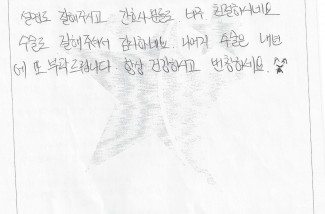 설명도 잘해주시고 간호사분들도 너무 친절하시네요
수술도 잘해주셔서 감사하네요. 나머지 수술은 내년
에 또 부탁드립니다 항상 건강하시고 번창하세요. ^^